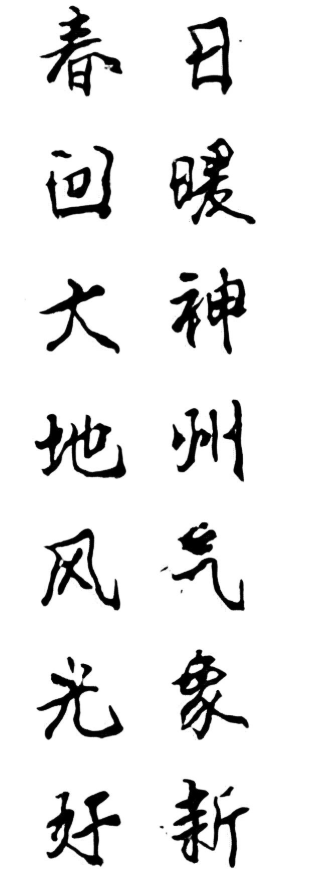 日暖神州气象新
春回大地风光好